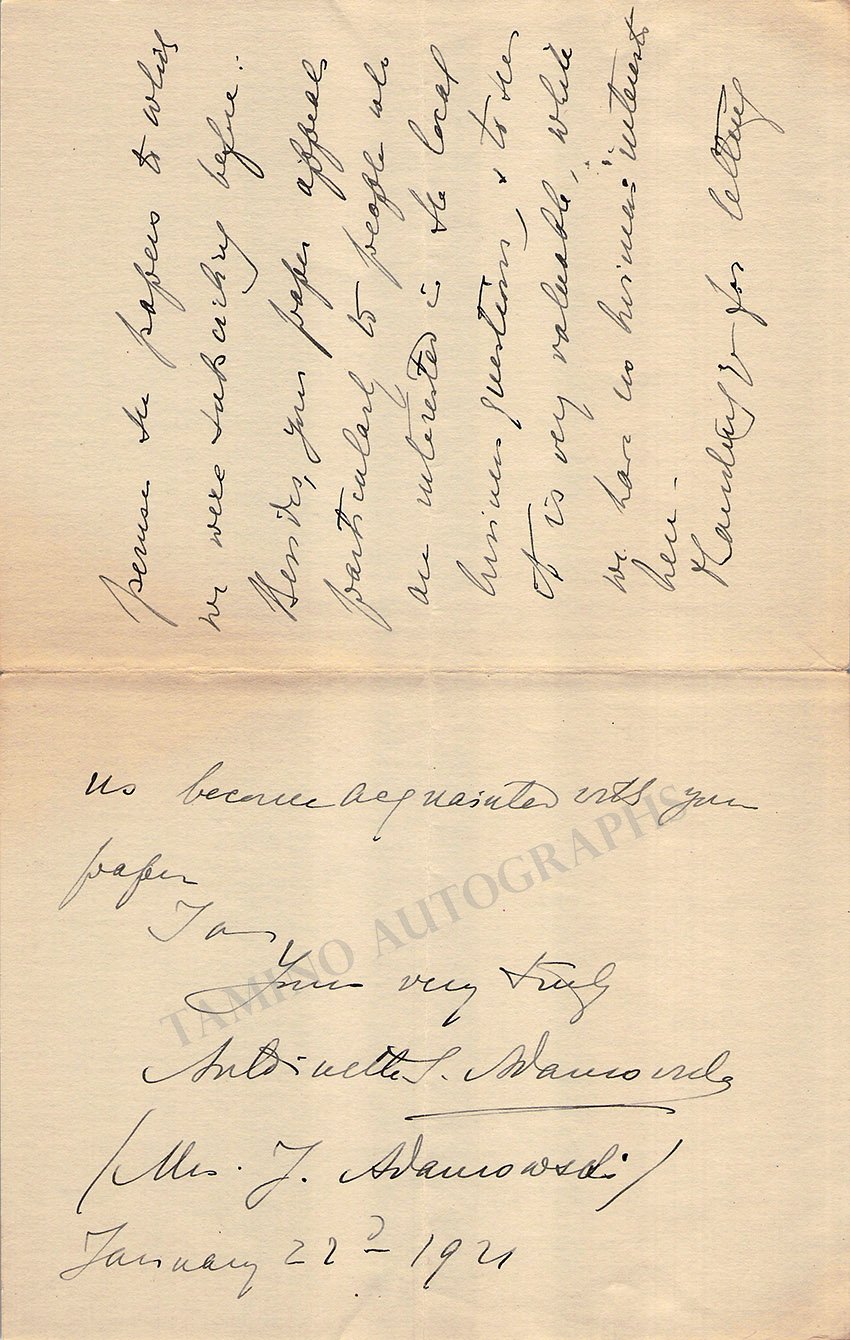 peruse the papers to which
we were subscribing before.
Besides, your paper appeals
particularly to people who
are interested in the local
business questions, & to them
it is very valuable, while
we have no business interests
here.
Thanking you for letting
us become acquainted with your
paper
I am,
Yours very truly
Antoinette S. Adamowska
(Mrs. J. Adamowski)
January 22d 1921
TAMINO AUTOGRAPHS